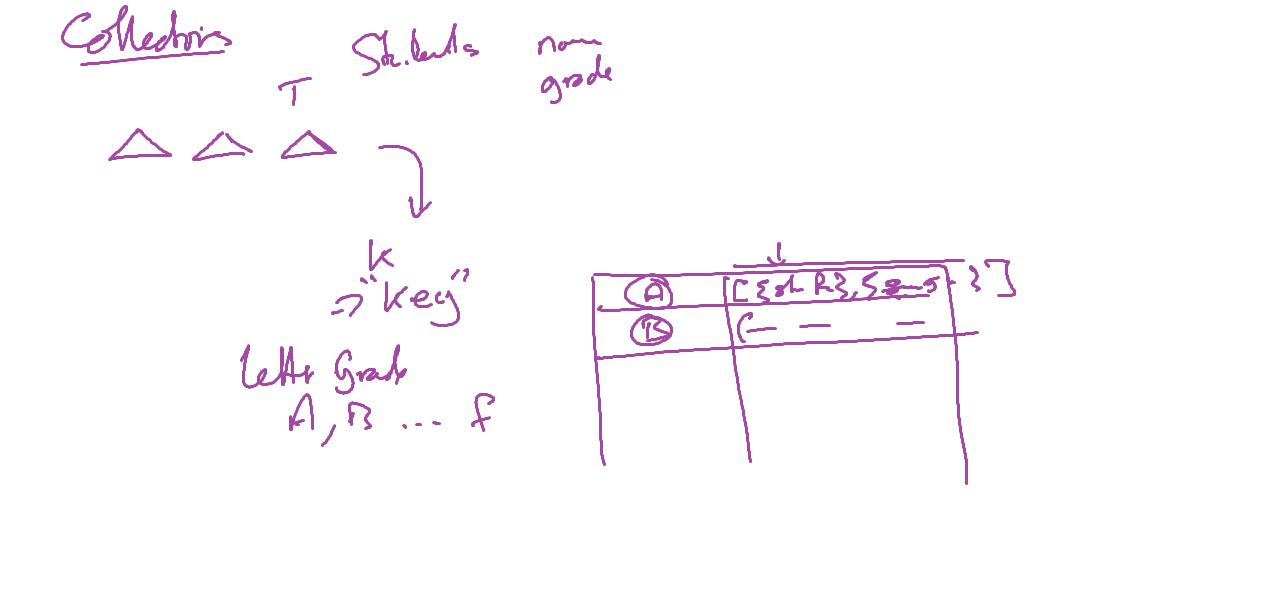 Collectors
Students
name
grade
T
K
⇒ "Key"
Letter Grade
A, B ... F
A
B